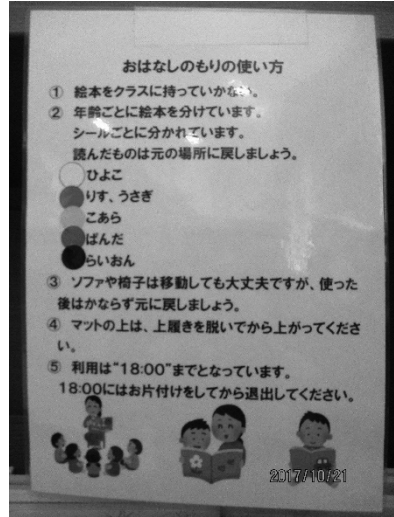 おはなしのもりの使い方
① 絵本をクラスに持っていかない。
② 年齢ごとに絵本を分けています。
シールごとに分かれています。
読んだものは元の場所に戻しましょう。
ひよこ
りす、うさぎ
こあら
ぱんだ
らいおん
③ ソファや椅子は移動しても大丈夫ですが、使った
後はかならず元に戻しましょう。
④ マットの上は、上履きを脱いでから上がってくださ
い。
⑤ 利用は“18:00”までとなっています。
18:00にはお片付けをしてから退出してください。
2017/10/21